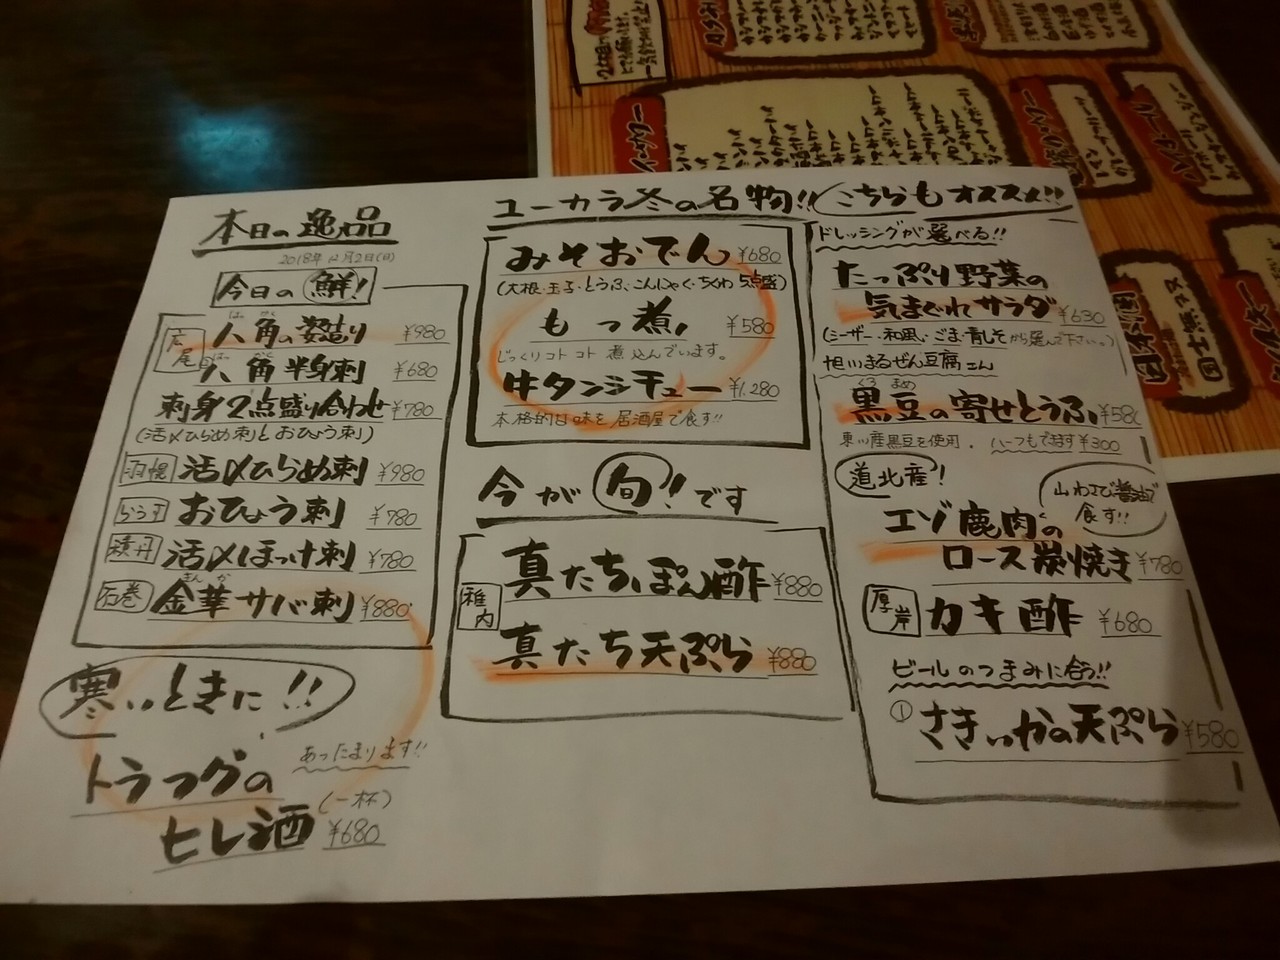 本日の逸品
2018年12月2日(日)
今日の鮮!
八角の姿造り ¥980
八角半身刺 ¥680
刺身2点盛り合わせ ¥780
(活〆ひらめ刺とおひょう刺)
羽幌 活〆ひらめ刺 ¥980
らうす おひょう刺 ¥780
積丹 活〆ほっけ刺 ¥780
石巻 金華サバ刺 ¥880
きんか
寒いときに!!
あったまります!!
トラフグの
ヒレ酒 (一杯) ¥680
ユーカラ冬の名物!!
みそおでん ¥680
(大根・玉子・とうふ・こんにゃく・ちくわ 5点盛)
もつ煮 ¥580
じっくりコトコト煮込んでいます。
牛タンシチュー ¥1,280
本格的な味を居酒屋で食す!!
今が旬!です
稚内
真たちぽん酢 ¥880
真たち天ぷら ¥880
こちらもオススメ!!
ドレッシングが選べる!!
たっぷり野菜の
気まぐれサラダ ¥630
(シーザー・和風・ごま・青しそから選んで下さい。)
旭川まるぜん豆腐こん
くろまめ
黒豆の寄せとうふ ¥580
東川産黒豆を使用。ハーフもできます ¥300
道北産!
山わさび醤油で
食す!!
エゾ鹿肉の
ロース炭焼き ¥780
厚岸 カキ酢 ¥680
ビールのつまみに合う!!
さきいかの天ぷら ¥580